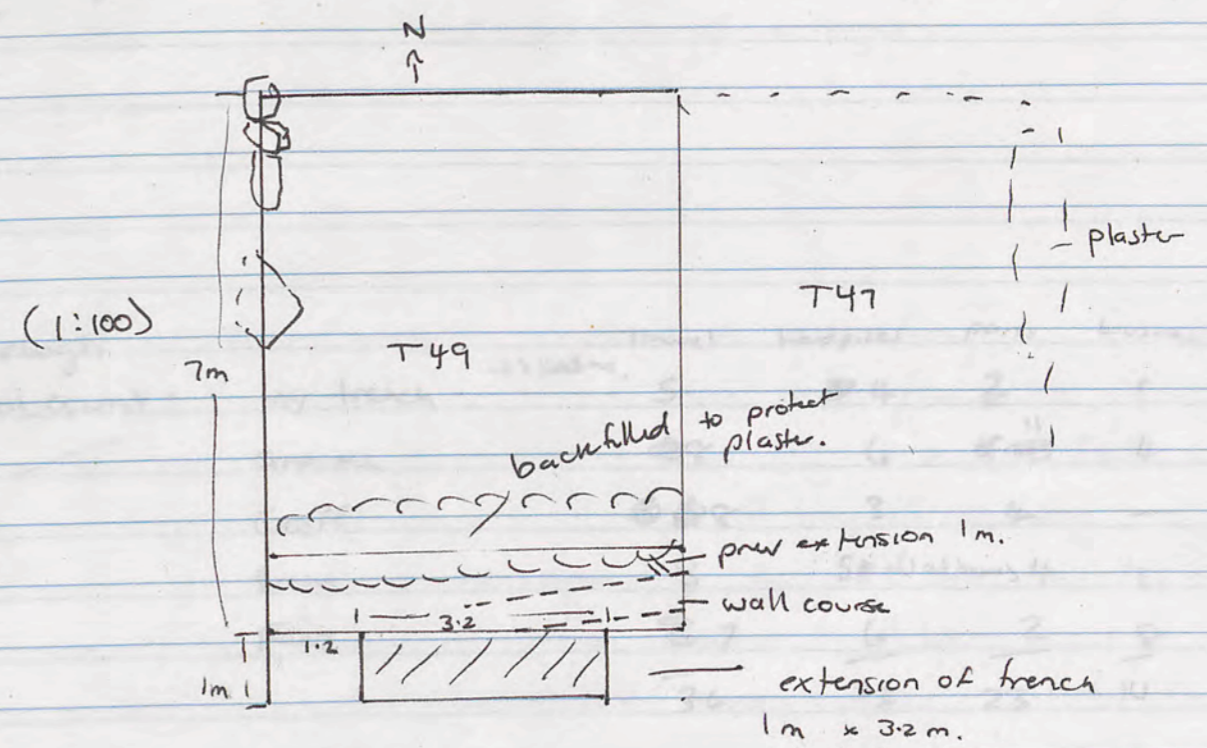 N
plaster
T47
(1:100)
T49
7m
backfilled to protect
plaster.
prev extension 1m.
wall course
3.2
1.2
1m
extension of trench
1m x 3.2m.